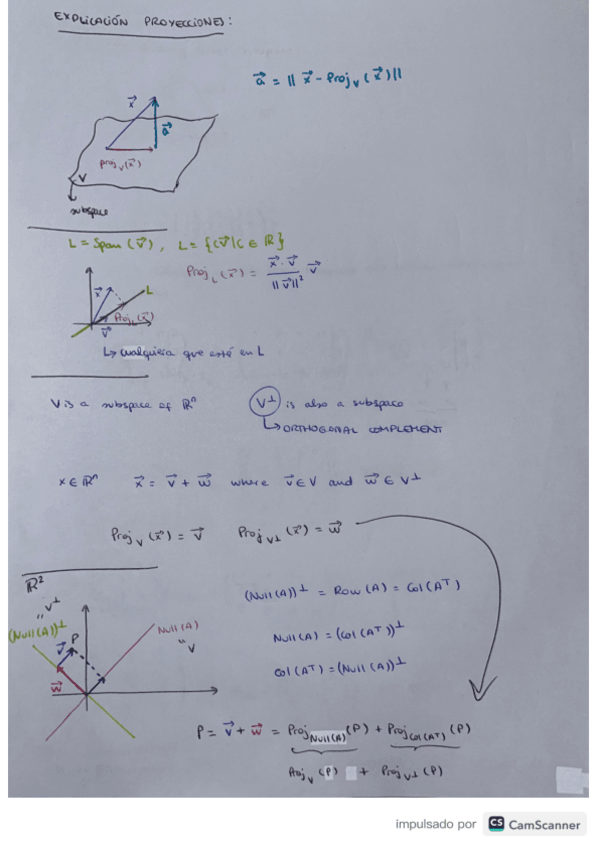 EXPLICACIÓN PROYECCIONES:
a⃗ = || x⃗ - Proj_V (x⃗) ||
x⃗
a⃗
Proj_V(x⃗)
V
subspace
L = Span (v⃗), L = {cv⃗ | c ∈ ℝ}
Proj_L (x⃗) = (x⃗ · v⃗ / ||v⃗||²) v⃗
x⃗
L
Proj_L(x⃗)
v⃗
↳ cualquiera que esté en L
V is a subspace of ℝⁿ
V⊥ is also a subspace
↳ ORTHOGONAL COMPLEMENT
x ∈ ℝⁿ x⃗ = v⃗ + w⃗ where v⃗ ∈ V and w⃗ ∈ V⊥
Proj_V (x⃗) = v⃗ Proj_V⊥ (x⃗) = w⃗
ℝ²
(Null(A))⊥ = Row (A) = Col (Aᵀ)
"V⊥
(Null(A))⊥
P
Null(A)
"V
v⃗
w⃗
Null(A) = (Col (Aᵀ))⊥
Col (Aᵀ) = (Null(A))⊥
P = v⃗ + w⃗ = Proj_Null(A) (P) + Proj_Col(Aᵀ) (P)
Proj_V (P) + Proj_V⊥ (P)
impulsado por CS CamScanner